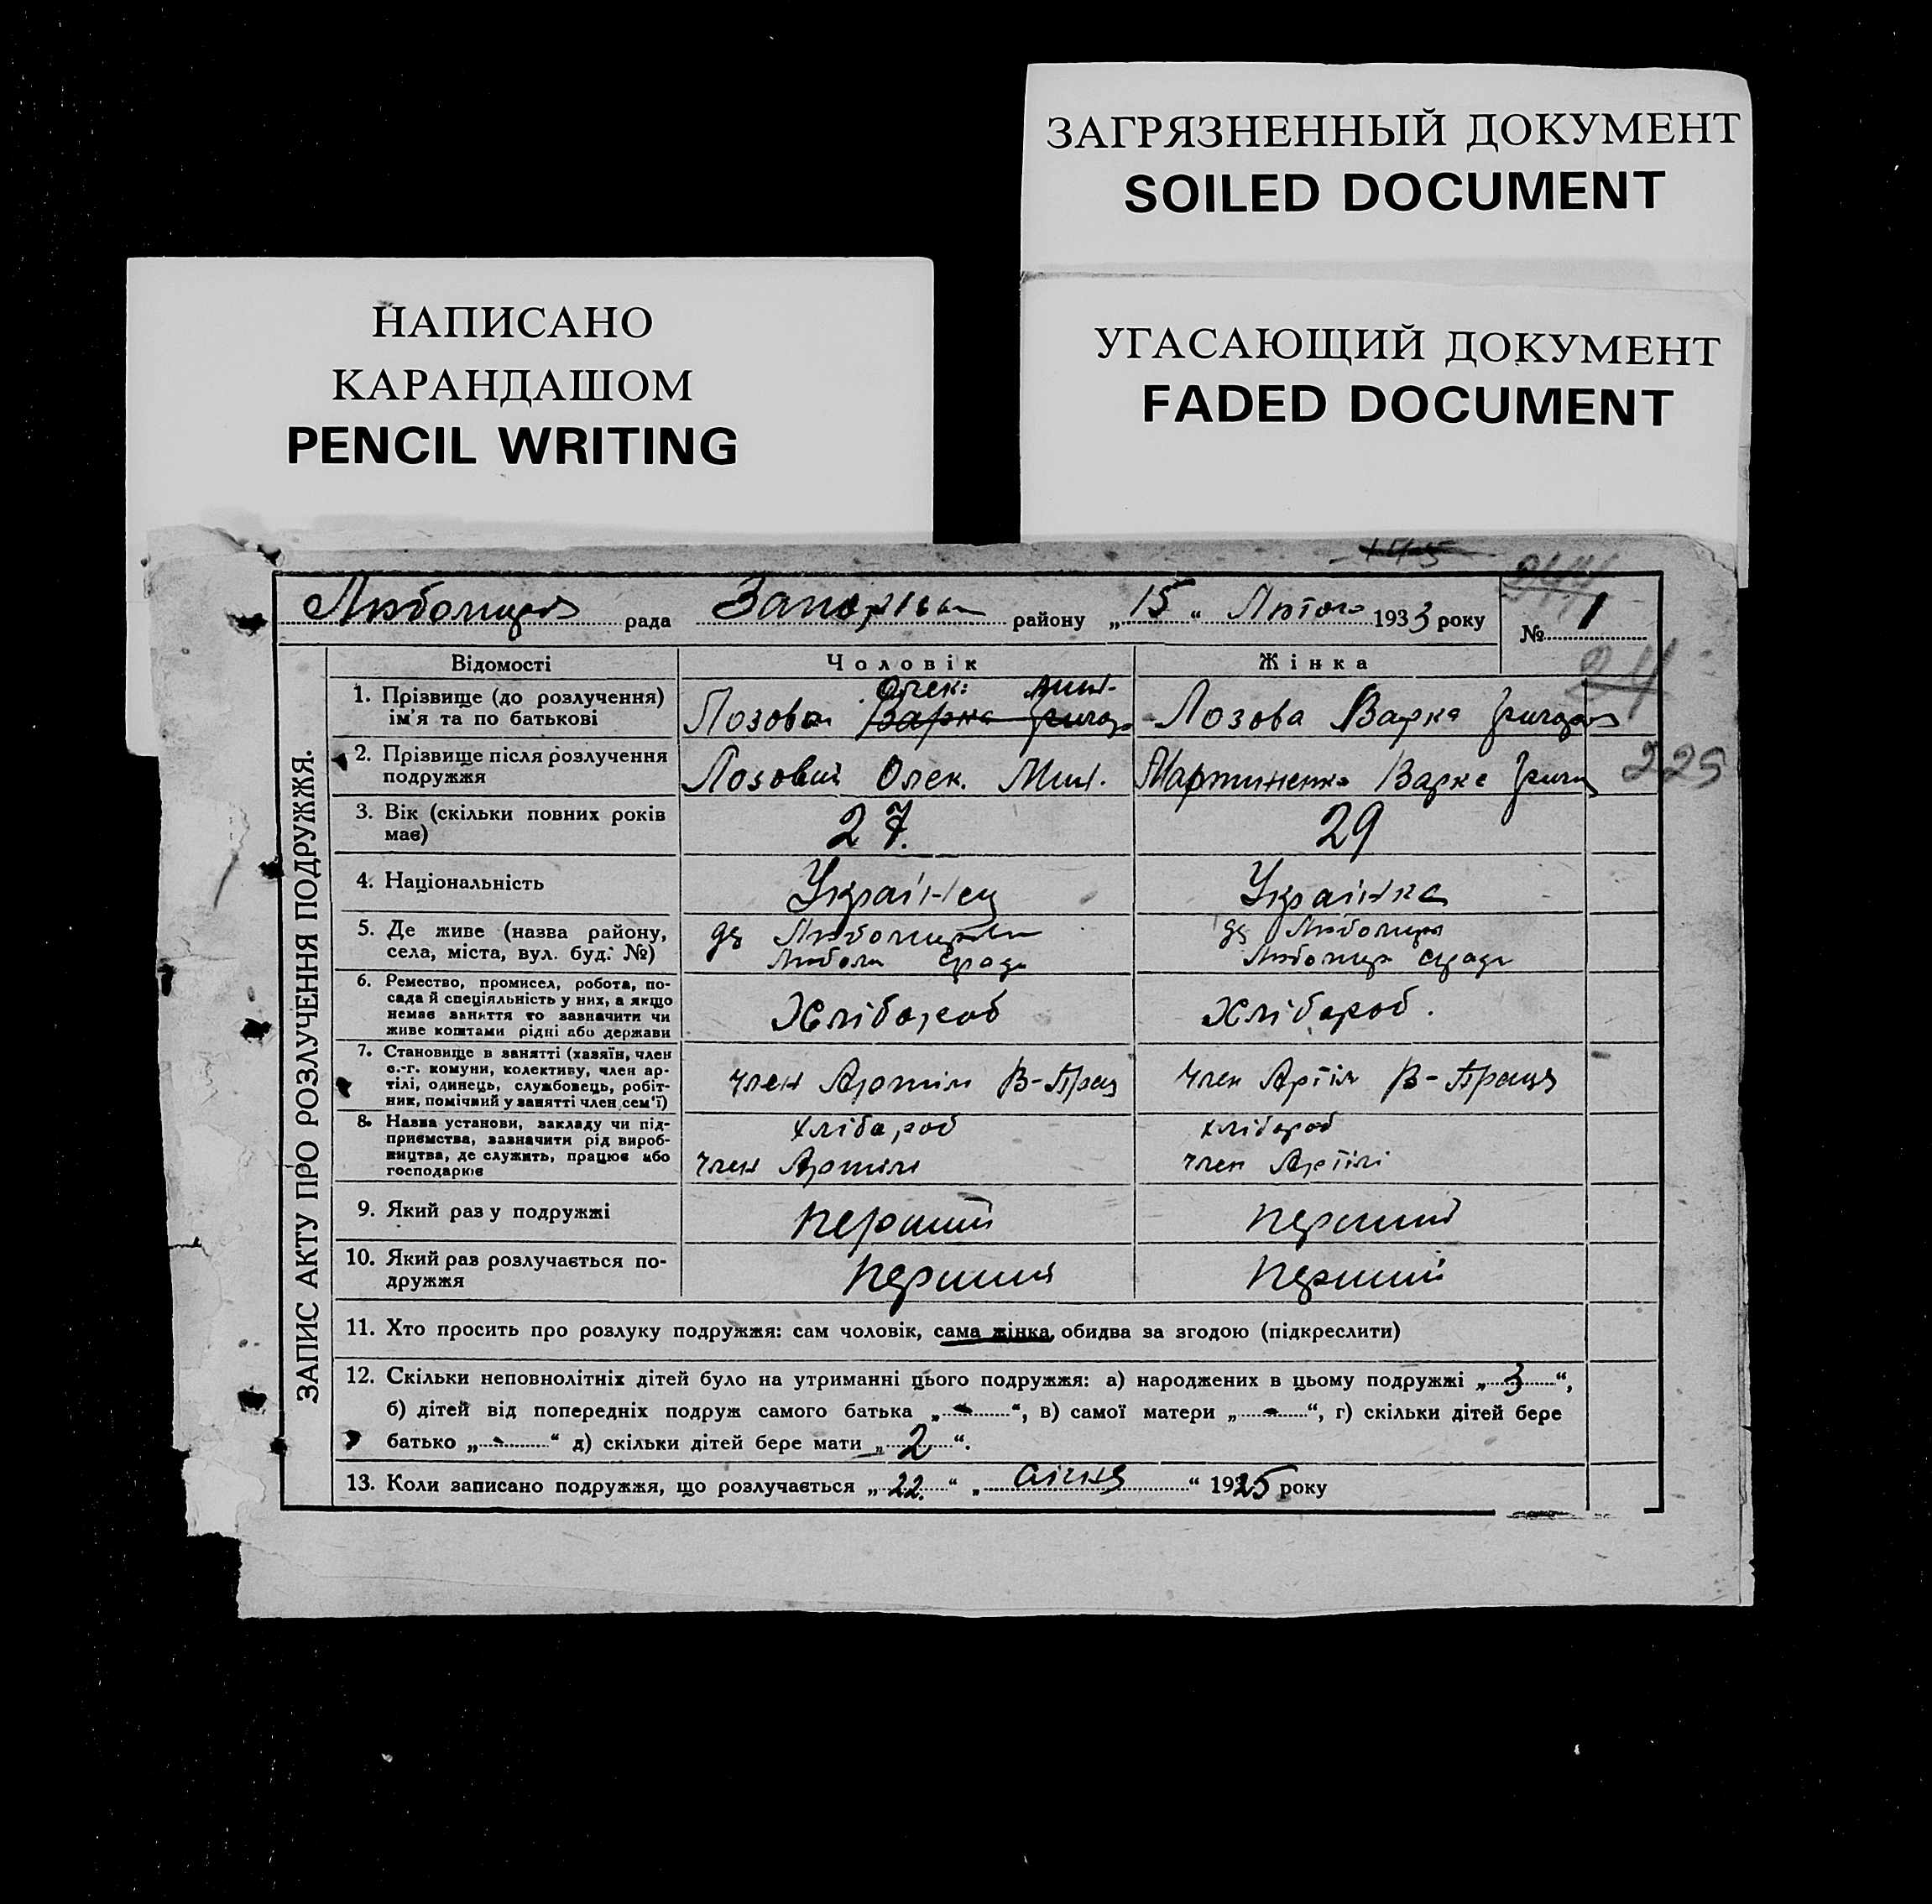 ЗАГРЯЗНЕННЫЙ ДОКУМЕНТ
SOILED DOCUMENT
НАПИСАНО
КАРАНДАШОМ
PENCIL WRITING
УГАСАЮЩИЙ ДОКУМЕНТ
FADED DOCUMENT
рада району „15“ Лютого 1933 року № 1
ЗАПИС АКТУ ПРО РОЗЛУЧЕННЯ ПОДРУЖЖЯ.
Відомості Чоловік Жінка
1. Прізвище (до розлучення)
ім'я та по батькові
Олек: Мих.
Лозовой Варка Григор
Лозова Варка Григоров
2. Прізвище після розлучення
подружжя
Лозовий Олек. Мих.
Мартиненко Варка Григ
225
3. Вік (скільки повних років
має)
27.
29
4. Національність
Українец
Українка
5. Де живе (назва району,
села, міста, вул. буд. №)
6. Ремество, промисел, робота, по-
сада й спеціяльність у них, а якщо
немає заняття то зазначити чи
живе коштами рідні або держави
Хлібароб
Хлібароб.
7. Становище в занятті (хазяїн, член
с.-г. комуни, колективу, член ар-
тілі, одинець, службовець, робіт-
ник, помічний у занятті член сем'ї)
член Артілі В-Прац
член Артіл В-Праця
8. Назва установи, закладу чи під-
приємства, зазначити рід вироб-
ництва, де служить, працює або
господарює
хлібароб
член Артілі
хлібароб
член Артілі
9. Який раз у подружжі
перший
перший
10. Який раз розлучається по-
дружжя
перший
перший
11. Хто просить про розлуку подружжя: сам чоловік, сама жінка, обидва за згодою (підкреслити)
12. Скільки неповнолітніх дітей було на утриманні цього подружжя: а) народжених в цьому подружжі „3“,
б) дітей від попередніх подруж самого батька „-“, в) самої матери „-“, г) скільки дітей бере
батько „-“ д) скільки дітей бере мати „2“.
13. Коли записано подружжя, що розлучається „22.“ „січня“ 1925 року